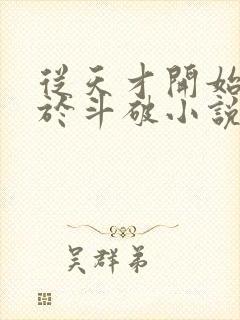 從天才開始
於斗破小說
吳群弟